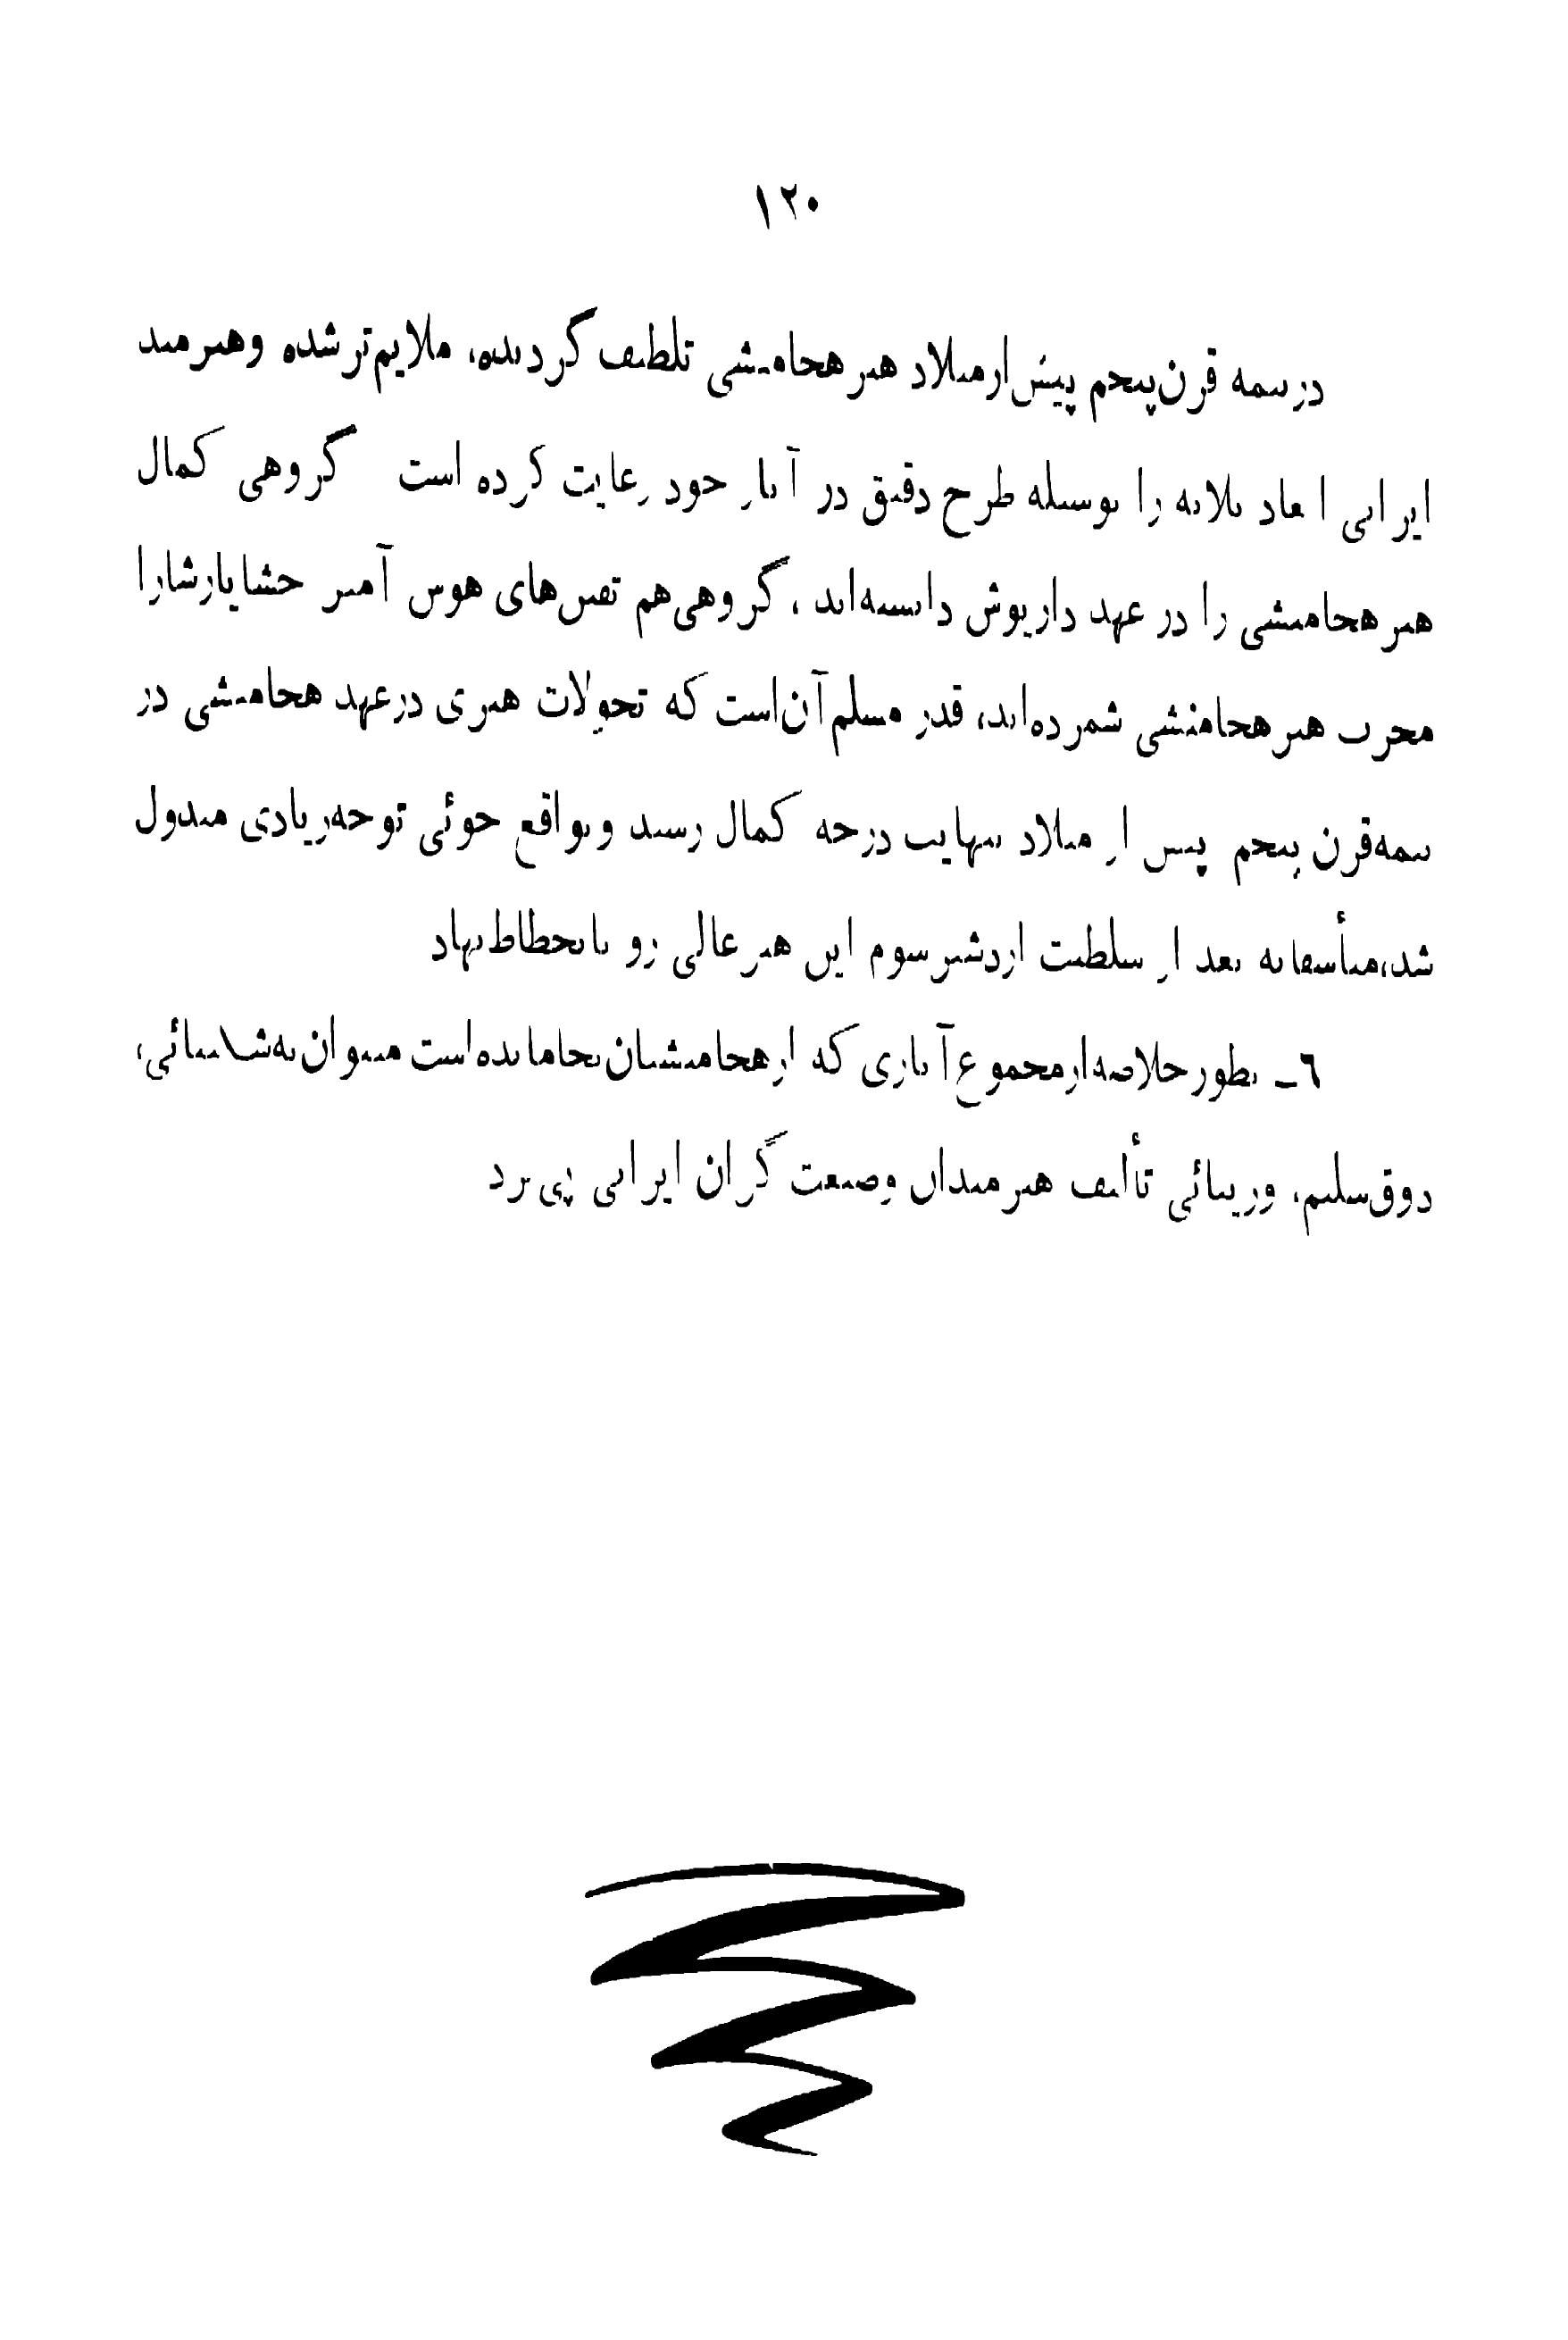 ۱۲۰
در نیمه قرن پنجم پیش از میلاد هنر هخامنشی تلطیف گردیده، ملایم‌تر شده و هنرمند
ایرانی ابعاد ثلاثه را بوسیله طرح دقیق در آثار خود رعایت کرده است گروهی کمال
هنر هخامنشی را در عهد داریوش دانسته‌اند، گروهی هم نقش‌های هوس آمیز خشایارشا را
مخرب هنر هخامنشی شمرده‌اند، قدر مسلم آن‌است که تحولات هنری در عهد هخامنشی در
نیمه قرن پنجم پیش از میلاد بنهایت درجه کمال رسید و بواقع جوئی توجه زیادی مبذول
شد، متأسفانه بعد از سلطنت اردشیر سوم این هنر عالی رو بانحطاط نهاد
٦ـ بطور خلاصه از مجموع آثاری که از هخامنشیان بجا مانده‌است میتوان به شناسائی،
ذوق سلیم، و زیبائی تألیف هنرمندان و صنعت گران ایرانی پی برد